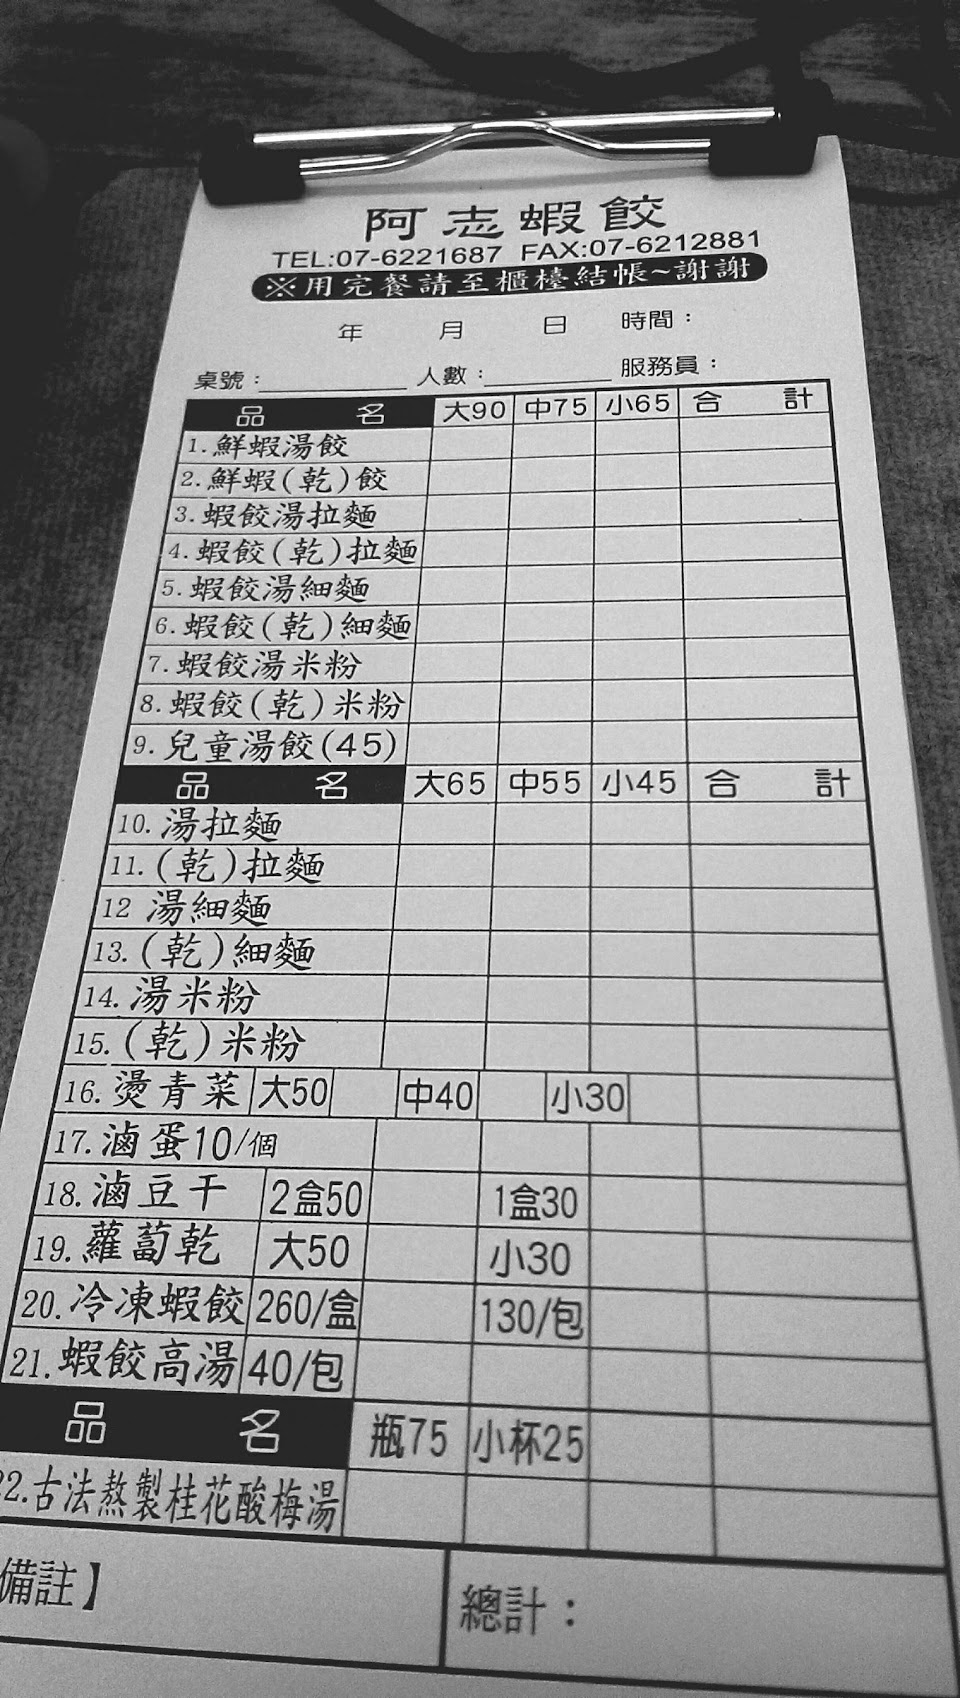 阿志蝦餃
TEL:07-6221687 FAX:07-6212881
※用完餐請至櫃檯結帳~謝謝
年 月 日 時間：
桌號： 人數： 服務員：
品名 大90 中75 小65 合計
1.鮮蝦湯餃
2.鮮蝦(乾)餃
3.蝦餃湯拉麵
4.蝦餃(乾)拉麵
5.蝦餃湯細麵
6.蝦餃(乾)細麵
7.蝦餃湯米粉
8.蝦餃(乾)米粉
9.兒童湯餃(45)
品名 大65 中55 小45 合計
10.湯拉麵
11.(乾)拉麵
12 湯細麵
13.(乾)細麵
14.湯米粉
15.(乾)米粉
16.燙青菜 大50 中40 小30
17.滷蛋10/個
18.滷豆干 2盒50 1盒30
19.蘿蔔乾 大50 小30
20.冷凍蝦餃 260/盒 130/包
21.蝦餃高湯 40/包
品名 瓶75 小杯25
22.古法熬製桂花酸梅湯
備註】 總計：